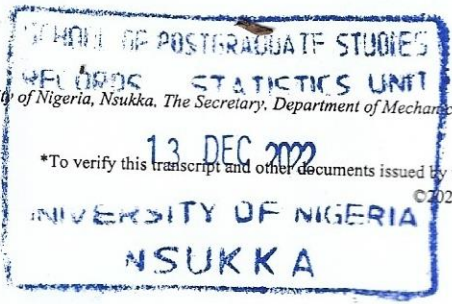 SCHOOL OF POSTGRADUATE STUDIES
RECORDS STATISTICS UNIT
of Nigeria, Nsukka, The Secretary, Department of
13 DEC 2022
*To verify this transcript and other documents issued by
UNIVERSITY OF NIGERIA
NSUKKA